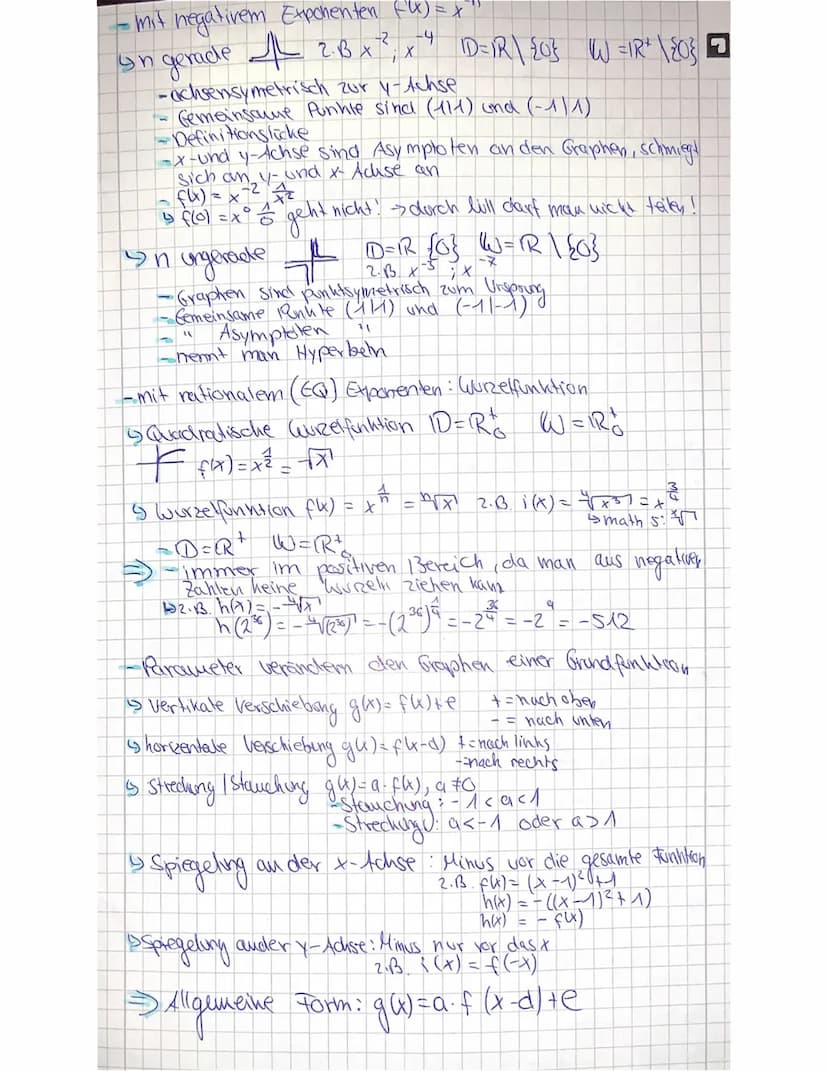 - mit negativem Exponenten f(x) = x⁻ⁿ
↳ n gerade z.B x⁻² ; x⁻⁴ D=ℝ\{0} W=ℝ⁺\{0}
- achsensymetrisch zur y-Achse
- Gemeinsame Punkte sind (1|1) und (-1|1)
- Definitionslücke
- x-und y-Achse sind Asymptoten an den Graphen, schmiegt
sich an y- und x-Achse an
- f(x) = x⁻² 1/x²
↳ f(0) = x⁰ 1/0 geht nicht! → durch Null darf man nicht teilen!
↳ n ungerade D=ℝ {0} W=ℝ\{0}
z.B x⁻⁵ ; x⁻⁷
- Graphen sind punktsymetrisch zum Ursprung
- Gemeinsame Punkte (1|1) und (-1|-1)
- " Asymptoten "
- nennt man Hyperbeln
- mit rationalem (∈ℚ) Exponenten: Wurzelfunktion
↳ Quadratische Wurzelfunktion D=ℝ₀⁺ W=ℝ₀⁺
f(x) = x^(1/2) = √x
↳ Wurzelfunktion f(x) = x^(1/n) = ⁿ√x z.B i(x) = ⁴√x³ = x^(3/4)
↳ math 5: ˣ√
- D=ℝ⁺ W=ℝ₀⁺
⇒ - immer im positiven Bereich, da man aus negativen
Zahlen keine Wurzeln ziehen kann
↳ z.B. h(x) = -⁴√x
h(2³⁶) = -⁴√(2³⁶) = -(2³⁶)^(1/4) = -2^(36/4) = -2⁹ = -512
- Parameter verändern den Graphen einer Grundfunktion
↳ Vertikale Verschiebung g(x) = f(x)+e + = nach oben
- = nach unten
↳ horizentale Verschiebung g(x) = f(x-d) + = nach links
- = nach rechts
↳ Streckung / Stauchung g(x) = a·f(x), a ≠ 0
- Stauchung: -1 < a < 1
- Streckung: a < -1 oder a > 1
↳ Spiegelung an der x-Achse: Minus vor die gesamte Funktion
z.B. f(x) = (x-1)²+1
h(x) = -((x-1)²+1)
h(x) = -f(x)
↳ Spiegelung an der y-Achse: Minus nur vor das x
z.B. i(x) = f(-x)
⇒ Allgemeine Form: g(x) = a·f(x-d)+e